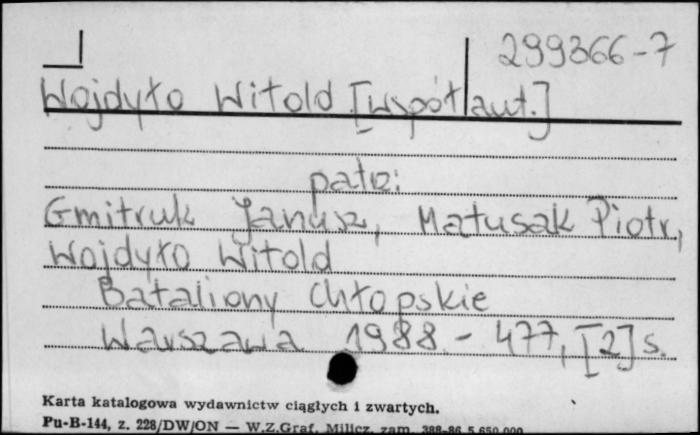 299366-7
Wojdyło Witold [współaut.]
patrz:
Gmitruk Janusz, Matusak Piotr,
Wojdyło Witold
Bataliony Chłopskie
Warszawa 1988. - 477, [2] s.
Karta katalogowa wydawnictw ciągłych i zwartych.
Pu-B-144, z. 228/DW/ON — W.Z.Graf. Milicz, zam. 388-86 5.650.000